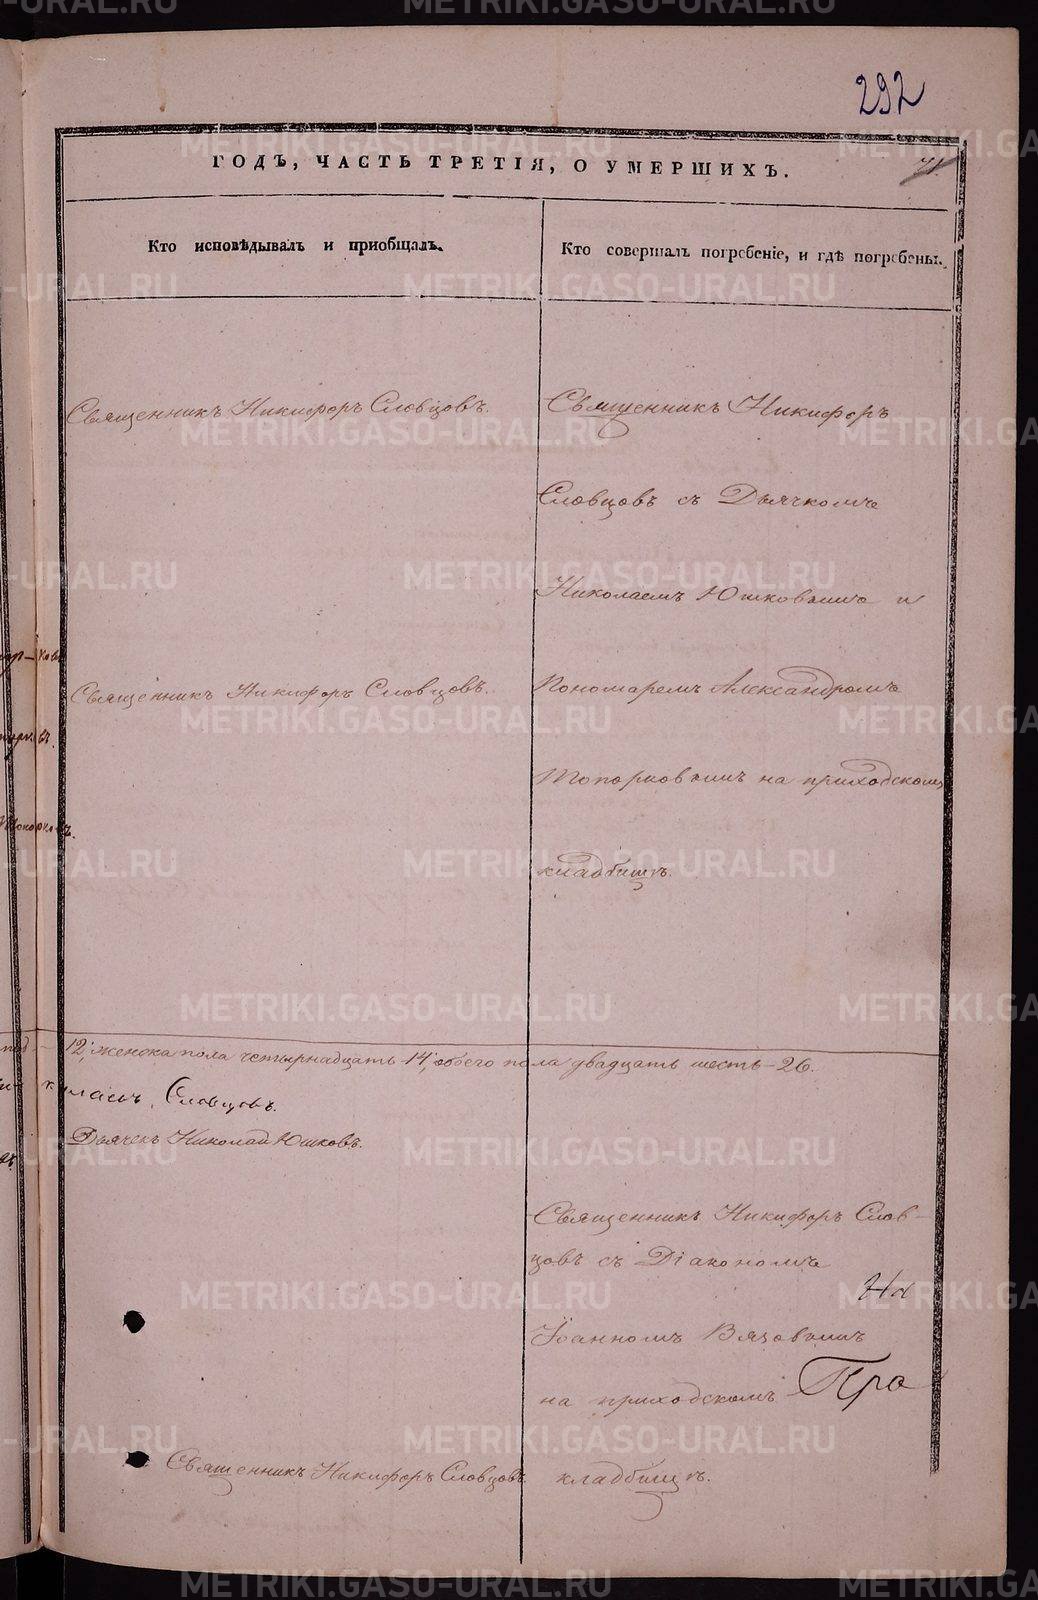 292
ГОДЪ, ЧАСТЬ ТРЕТІЯ, О УМЕРШИХЪ.
71.
Кто исповѣдывалъ и пріобщалъ.
Кто совершалъ погребеніе, и гдѣ погребены.
Священникъ Никифоръ Словцовъ.
Священникъ Никифоръ
Словцовъ съ Дьячкомъ
Николаемъ Юшковымъ и
Священникъ Никифоръ Словцовъ.
Пономаремъ Александромъ
Топорковымъ на приходскомъ
кладбищѣ.
12, женска пола четырнадцать 14, обоего пола двадцать шесть - 26.
Словцовъ.
Дьячекъ Николай Юшковъ.
Священникъ Никифоръ Слов-
цовъ съ Діакономъ
На
Іоанномъ Вязовымъ
на приходскомъ
Пра
Священникъ Никифоръ Словцовъ.
кладбищѣ.
METRIKI.GASO-URAL.RU